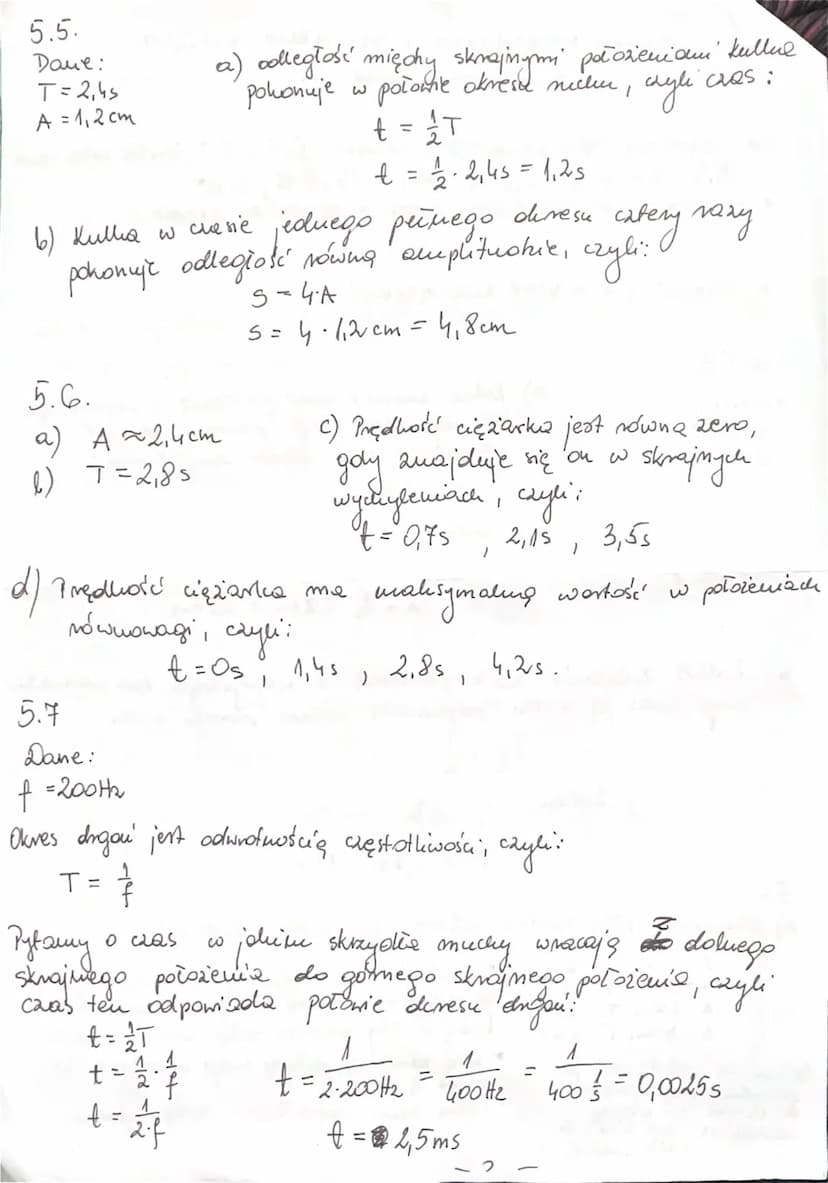 5.5.
Dane:
T = 2,4s
A = 1,2cm
a) odległość między skrajnymi położeniami kulka
pokonuje w połowie okresu ruchu, czyli czas:
t = 1/2 T
t = 1/2 · 2,4s = 1,2s
b) Kulka w czasie jednego pełnego okresu cztery razy
pokonuje odległość równą amplitudzie, czyli:
s = 4·A
s = 4 · 1,2 cm = 4,8cm
5.6.
a) A ≈ 2,4cm
b) T = 2,8s
c) Prędkość ciężarka jest równa zero,
gdy znajduje się on w skrajnych
wychyleniach, czyli:
t = 0,7s , 2,1s , 3,5s
d) Prędkość ciężarka ma maksymalną wartość w położeniach
równowagi, czyli:
t = 0s , 1,4s , 2,8s , 4,2s.
5.7
Dane:
f = 200Hz
Okres drgań jest odwrotnością częstotliwości, czyli:
T = 1/f
Pytamy o czas w jakim skrzydła muchy wracają z dolnego
skrajnego położenia do górnego skrajnego położenia, czyli
czas ten odpowiada połowie okresu drgań:
t = 1/2 T
t = 1/2 · 1/f
t = 1/(2·f)
t = 1/(2·200Hz) = 1/(400Hz) = 1/(400 1/s) = 0,0025s
t = 2,5ms
- 2 -